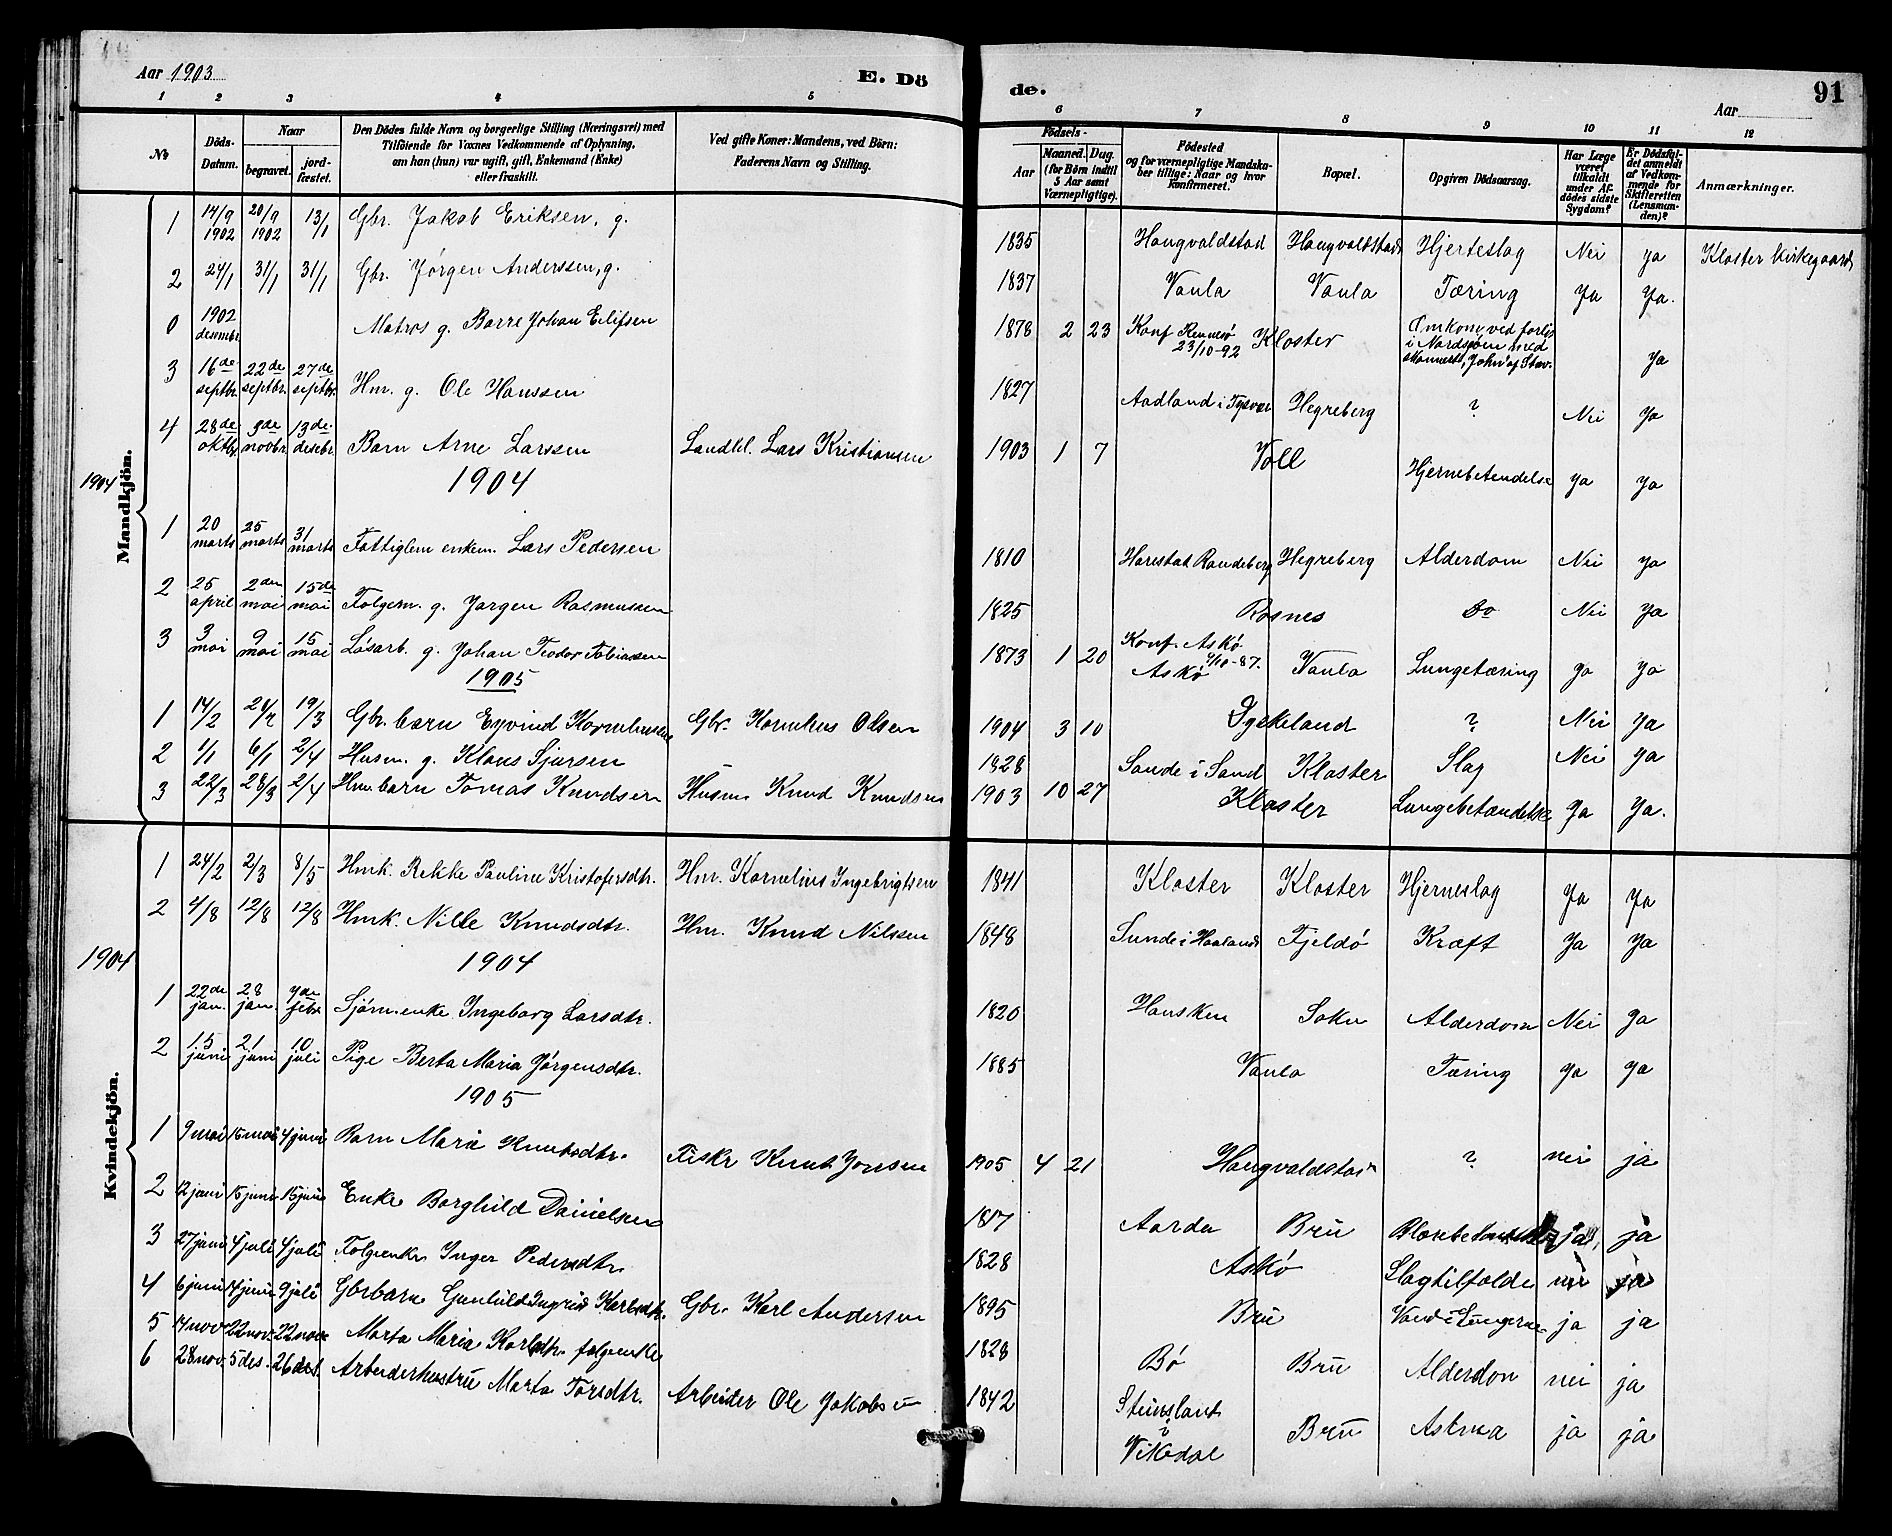 Aar 1903 E. Dö de. Aar 91
1 2 3 4 5 6 7 8 9 10 11 12
№ Döds-Datum. Naar begravet. jord-fæstet. Den Dödes fulde Navn og borgerlige Stilling (Næringsvei) med Tilföiende for Voxnes Vedkommende af Oplysning, om han (hun) var ugift, gift, Enkemand (Enke) eller fraskilt. Ved gifte Koner: Mandens, ved Börn: Faderens Navn og Stilling. Födsels- Aar Maaned. Dag. (for Börn indtil 5 Aar samt Værnepligtige). Födested og for værnepligtige Mandska-ber tillige: Naar og hvor konfirmeret. Bopæl. Opgiven Dödsaarsag. Har Læge været tilkaldt under Af-dödes sidste Sygdom? Er Dödsfal-det anmeldt af Vedkom-mende for Skifteretten (Lensman-den)? Anmærkninger.
Mandkjön.
1 14/9 1902 20/9 1902 13/1 Gbr. Jakob Eriksen, g. 1835 Haugvaldstad Haugvaldstad Hjerteslag Nei ja Kloster Kirkegaard
2 24/1 31/1 31/1 Gbr. Jørgen Anderssen, g. 1837 Vaula Vaula Tæring Ja Ja.
0 1902 desembr Matros g. Børre Johan Eilifsen 1878 2 23 Konf Rennesø 23/10-92 Kloster Omkom ved forlis i Nordsjøen med skonnert "John" af Stav. Ja
3 16de septbr. 22de septbr. 27de septbr. Hm. g. Ole Hanssen 1827 Aadland i Tysvær Hegreberg ? Nei Ja
4 28de oktbr 9de novbr 13de desebr. Barn Arne Larssen Landhl. Lars Kristiansen 1903 1 7 Voll Hjernebetendelse Ja Ja
1904 1904
1 20 marts 25 marts 31 marts Fattiglem enkem. Lars Pedersen 1810 Harestad Randeberg Hegreberg Alderdom Nei Ja
2 25 april 2den mai 15de mai Følgem. g. Jørgen Rasmussen 1825 Rosnes Do Nei Ja
3 3 mai 9 mai 15 mai Løsarb. g. Johan Teodor Tobiassen 1873 1 20 Konf. Askø 4/10-87. Askø Vaula Lungetæring Ja Ja
1905
1 14/2 24/2 19/3 Gbr. barn Eyvind Korneliussen Gbr. Kornelius Olsen 1904 3 10 Dysjeland ? Nei Ja
2 1/1 6/1 2/4 Husm. g. Klaus Sjursen 1828 Sande i Sand Kloster Slag Nei Ja
3 22/3 28/3 2/4 Hm. barn Tomas Knudsen Husm Knud Knudsen 1903 10 27 Kloster Lungebetændelse Ja Ja.
Kvindekjön.
1 24/2 2/3 8/5 Hmk. Rekke Pauline Kristofersdtr. Hm. Kornelius Ingebrigtsen 1841 Kloster Kloster Hjerneslag Ja Ja
2 4/8 12/8 12/8 Hmk. Nille Knudsdtr. Hm. Knud Nilssen 1848 Sunde i Haaland Fjeldø Kræft Ja Ja
1904 1904
1 22de jan. 28 jan. 7de febr Sjøm.enke Ingeborg Larsdtr. 1820 Hausken Sokn Alderdom Nei Ja
2 15 juni 21 juni 10 juli Pige Berta Maria Jørgensdtr. 1885 Vaula Tæring Ja Ja
1905
1 9 mai 15 mai 4 juni Barn Maria Knutsdtr. Fiskr Knut Jonsen 1905 4 21 Haugvaldstad ? nei ja
2 12 juni 15 juni 15 juni Enke Borghild Danielsen 1817 Aarda Bru ja ja
3 27 juni 4 juli 4 juli Følgeenke Inger Pedersdtr. 1828 Askø Slagtilfælde nei ja
4 6 juni 14 juni 9 juli Gbrbarn Gunhild Ingrid Karlsdtr. Gbr. Karl Andersen 1895 Bru Vand i Lungerne ja ja
5 14 nov 22 nov. 22 nov Marta Maria Karlsdtr. følgeenke 1828 Bø Bru Alderdom nei ja
6 28 nov. 5 des. 26 des. Arbeiderhustru Marta Torsdtr. Arbeider Ole Jakobsen 1842 Steinsland i Vikedal Bru Astma ja ja